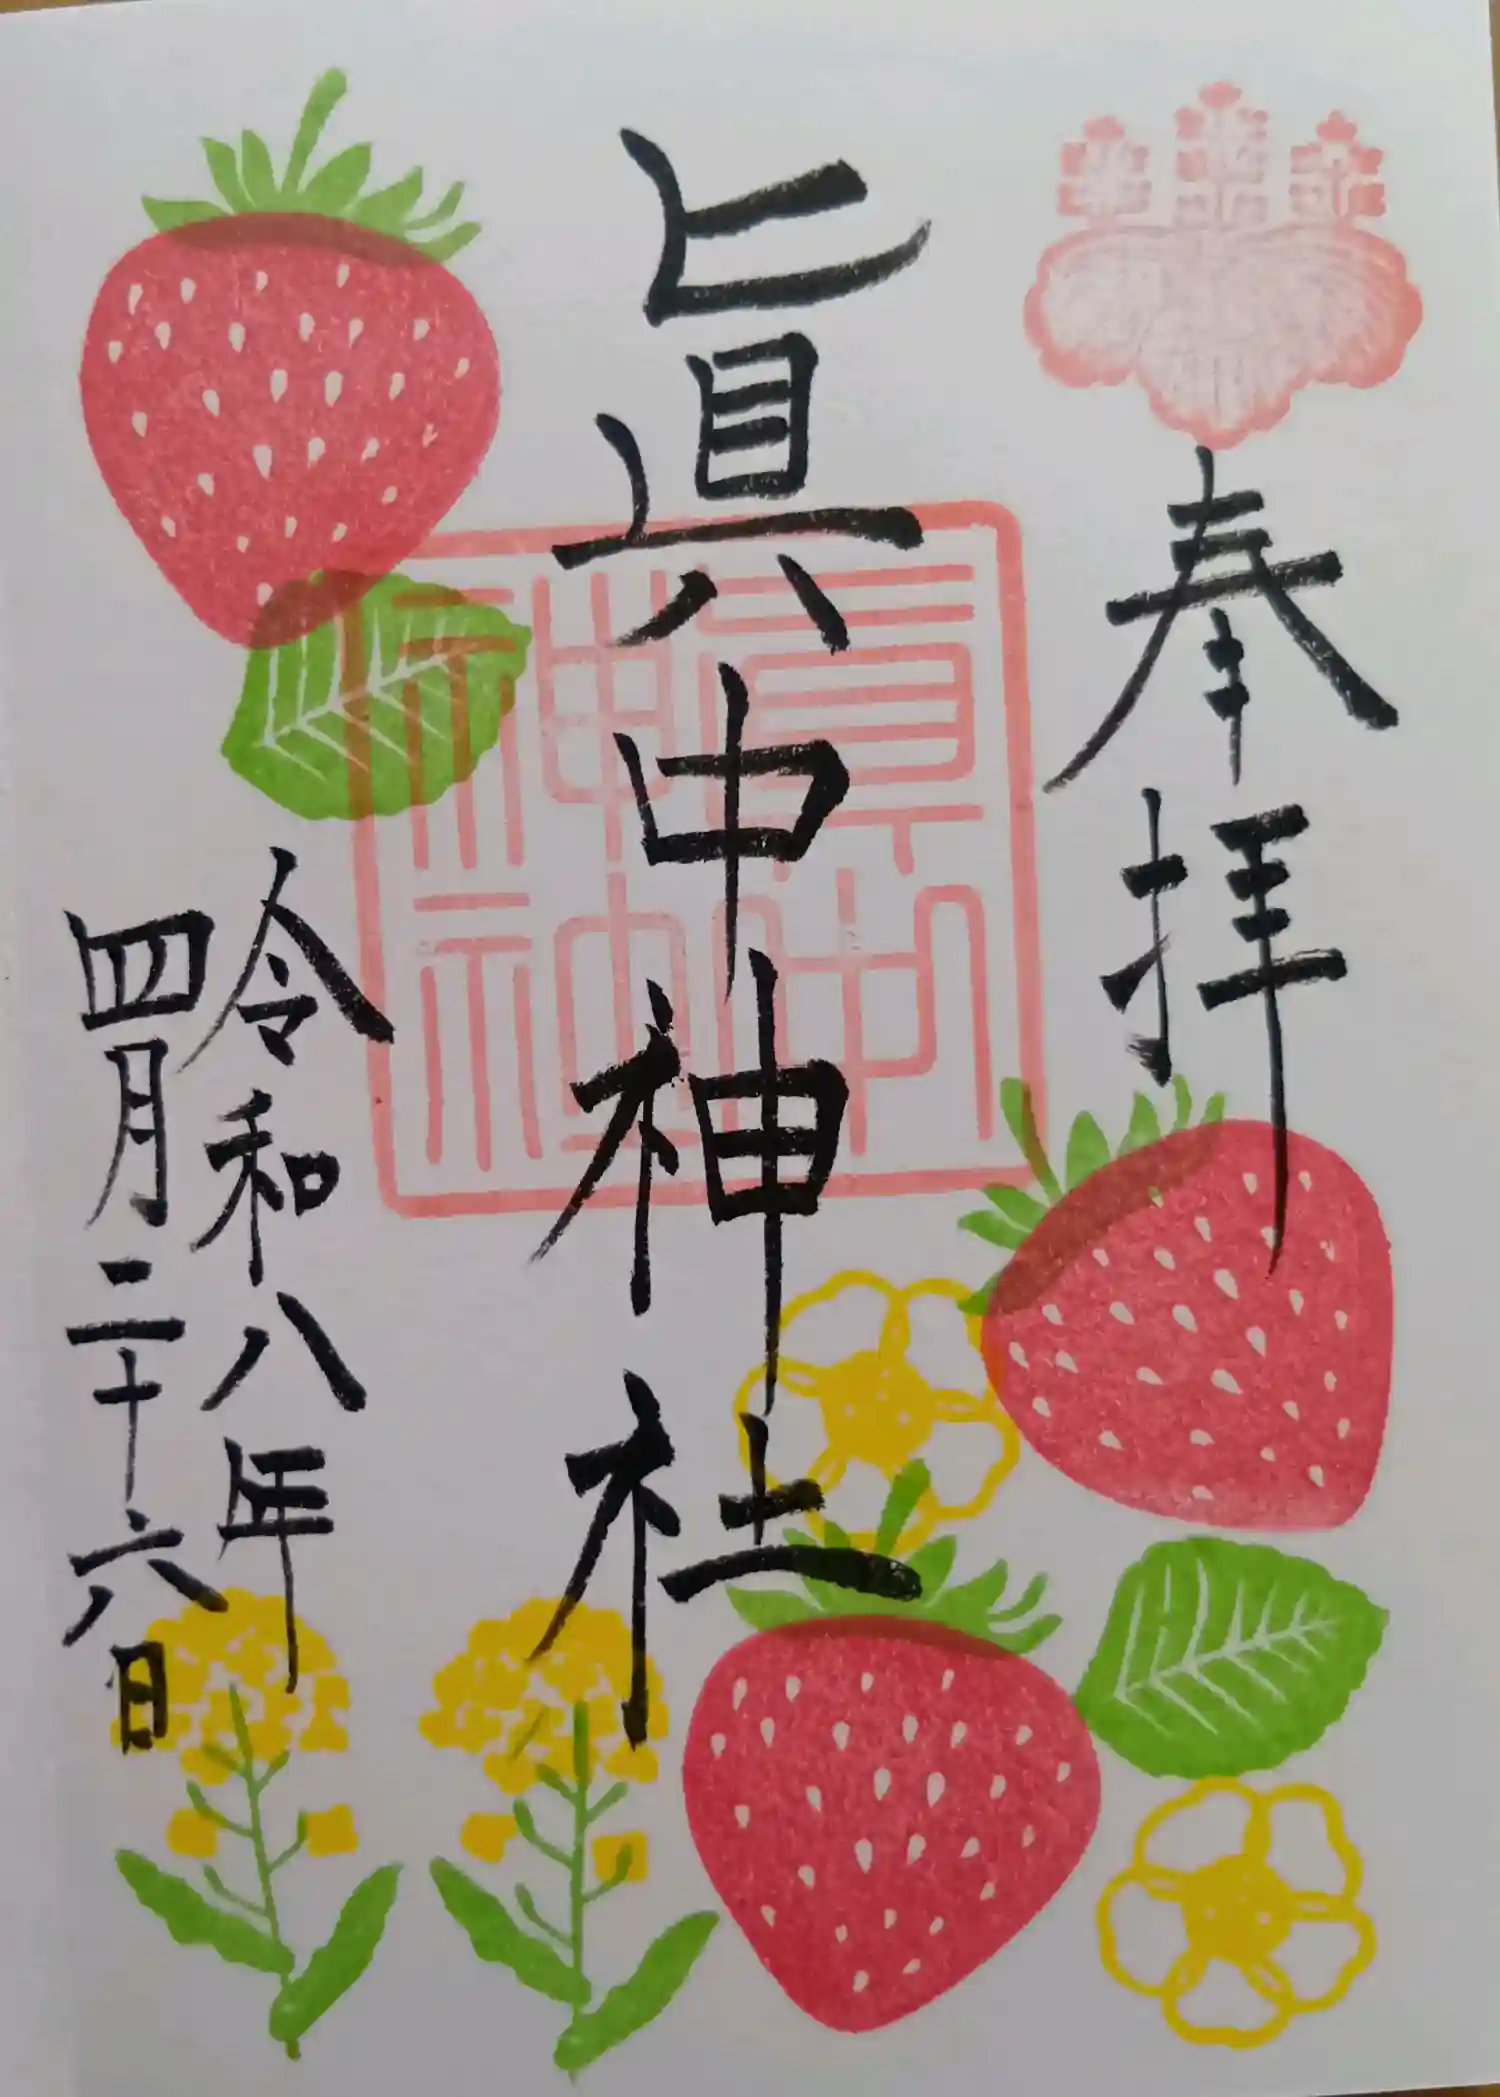 奉拝
眞中神社
令和八年
四月二十六日